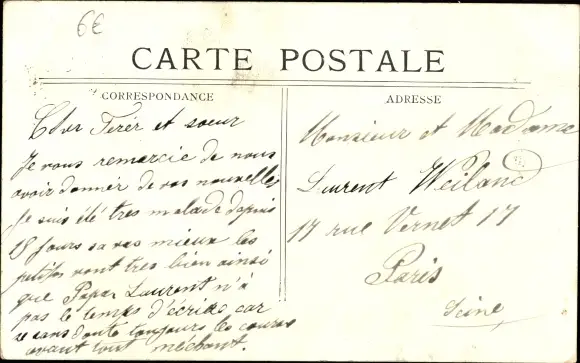 6€
CARTE POSTALE
CORRESPONDANCE
ADRESSE
Cher Frèr et soeur
Je vous remercie de nous
avoir donnér de vos nouvelles
Je suis été tres malade depuis
18 jours sa vas mieux les
petites vont tres bien ainsi
que Papa Laurent n'á
pas le temps d'écrire car
sans doute toujours les courses
avant tout méchant.
Monsieur et Madame
Laurent Weiland
17 rue Vernet 17
Paris
Seine